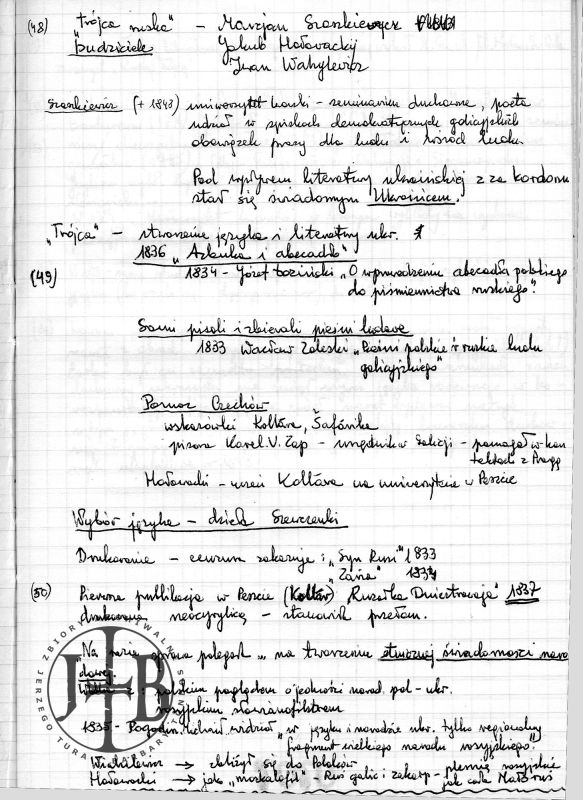 (48) "trójca ruska" – Marcjan Szaszkiewicz
"budziciele" Jakub Hołowackij
Iwan Wahylewicz
Szaszkiewicz (+ 1843) uniwersytet lwowski – seminarium duchowne, poeta
udział w spiskach demokratycznych galicyjskich
obowiązek pracy dla ludu i wśród ludu.
Pod wpływem literatury ukraińskiej z za kordonu
stał się świadomym Ukraińcem.
"Trójca" – stworzenie języka i literatury ukr.
1836 "Azbuka i abecadło"
(49) 1834 – Józef Łoziński "O wprowadzeniu abecadła polskiego
do piśmiennictwa ruskiego".
Sami pisali i zbierali pieśni ludowe
1833 Wacław Zaleski "Pieśni polskie i ruskie ludu
galicyjskiego"
Pomoc Czechów
wskazówki Kollára, Šafárika
pisma Karel V. Zap – urzędnik w Galicji – pomagał w kon
taktach z Pragą
Hołowacki – uczeń Kollára na uniwersytecie w Peszcie
Wybór języka – dzieła Szewczenki
Drukowanie – cenzura zakazuje: "Syn Rusi" 1833
"Zoria" 1834
(50) Pierwsza publikacja w Peszcie (Kollár) "Rusałka Dniestrowaja" 1837
drukowana neocyrylicą – stanowik przełom.
"Na razie sprawa polegał ... na tworzeniu etnicznej świadomości naro
dowej.
Walka z: polskim poglądem o jedności narod. pol-ukr.
rosyjskim słowianofilstwem
1835 – Pogodin, Michaił widział "w języku i narodzie ukr. tylko regionalny
fragment wielkiego narodu rosyjskiego."
Wahilewicz → zbliżył się do Polaków
Hołowacki → jako "moskalofil" – Ruś galic i zakarp – plemię rosyjskie
jak cała Małoruś
JTB
ZBIORY
JERZEGO